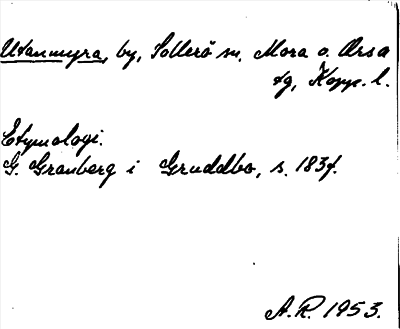 Utanmyra, by, Sollerö sn, Mora o. Orsa
tg, Kopp. l.
Etymologi.
G. Granberg i Gruddbo, s. 183f.
A.R. 1953.